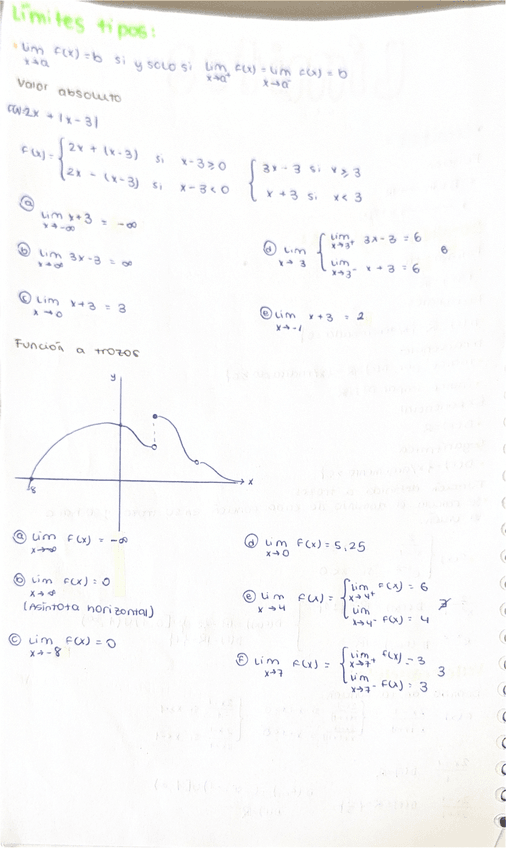 Límites tipos:
• lim x→a f(x) = b si y solo si lim x→a⁺ f(x) = lim x→a⁻ f(x) = b
Valor absoluto
f(x)=2x + |x-3|
f(x)= { 2x + (x-3) si x-3≥0 { 3x-3 si x≥3
2x - (x-3) si x-3<0 x+3 si x<3
ⓐ lim x→-∞ x+3 = -∞
ⓑ lim x→∞ 3x-3 = ∞
ⓓ lim x→3 { lim x→3⁺ 3x-3 = 6 6
lim x→3⁻ x+3 = 6
ⓒ lim x→0 x+3 = 3
ⓔ lim x→-1 x+3 = 2
Función a trozos
y
x
-8
ⓐ lim x→-∞ f(x) = -∞
ⓓ lim x→0 f(x) = 5,25
ⓑ lim x→∞ f(x) = 0
(Asíntota horizontal)
ⓔ lim x→4 f(x) = { lim x→4⁺ f(x) = 6 ∄
lim x→4⁻ f(x) = 4
ⓒ lim x→-8 f(x) = 0
ⓕ lim x→7 f(x) = { lim x→7⁺ f(x) = 3 3
lim x→7⁻ f(x) = 3